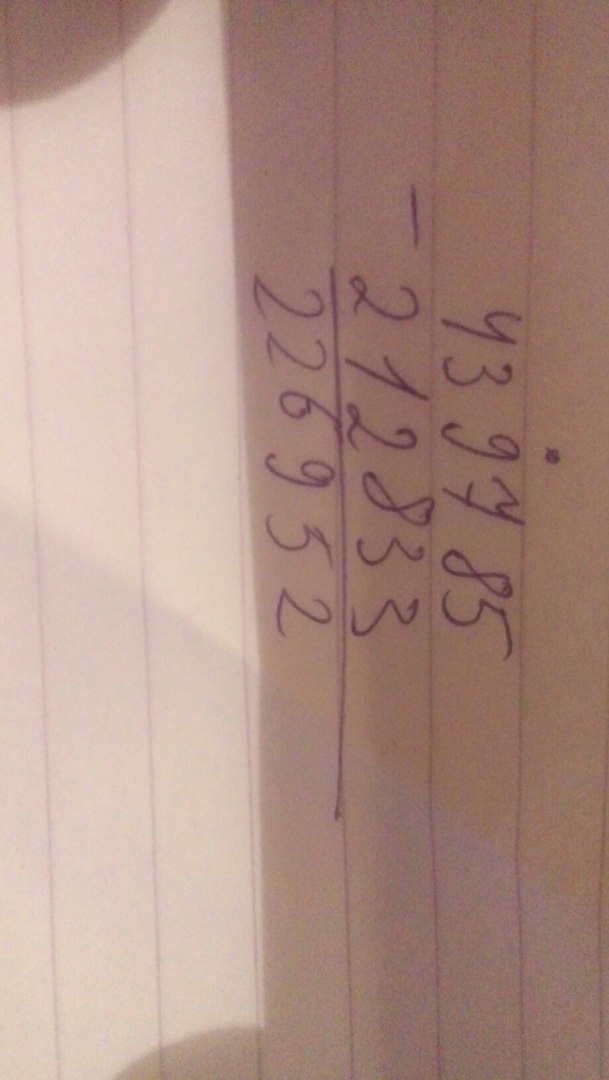 439785
- 212833
226952